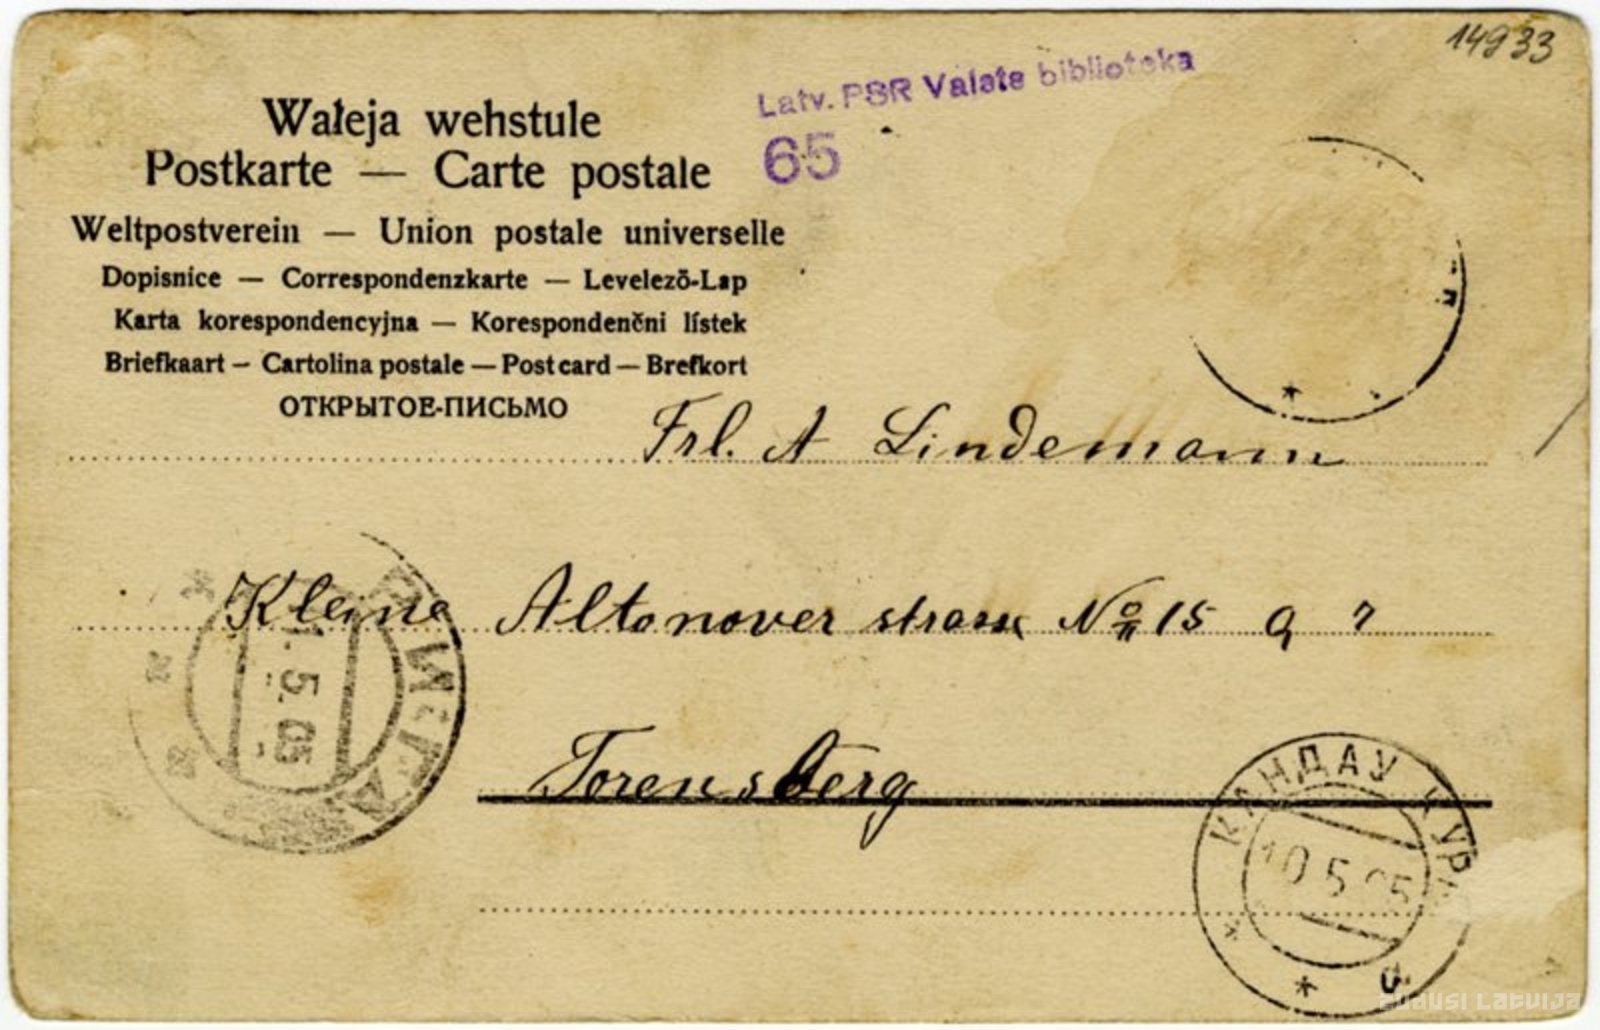 14933
Latv. PSR Valsts biblioteka
65
Wałeja wehstule
Postkarte — Carte postale
Weltpostverein — Union postale universelle
Dopisnice — Correspondenzkarte — Levelező-Lap
Karta korespondencyjna — Korespondenčni lístek
Briefkaart — Cartolina postale — Post card — Brefkort
ОТКРЫТОЕ-ПИСЬМО
Frl. A Lindemann
Kleine Altonover strasse No 15 q 7
Torensberg
РИГА
5. 05
КАНДАУ КУРЛ
10 5 05
ZUDUSI LATVIJA